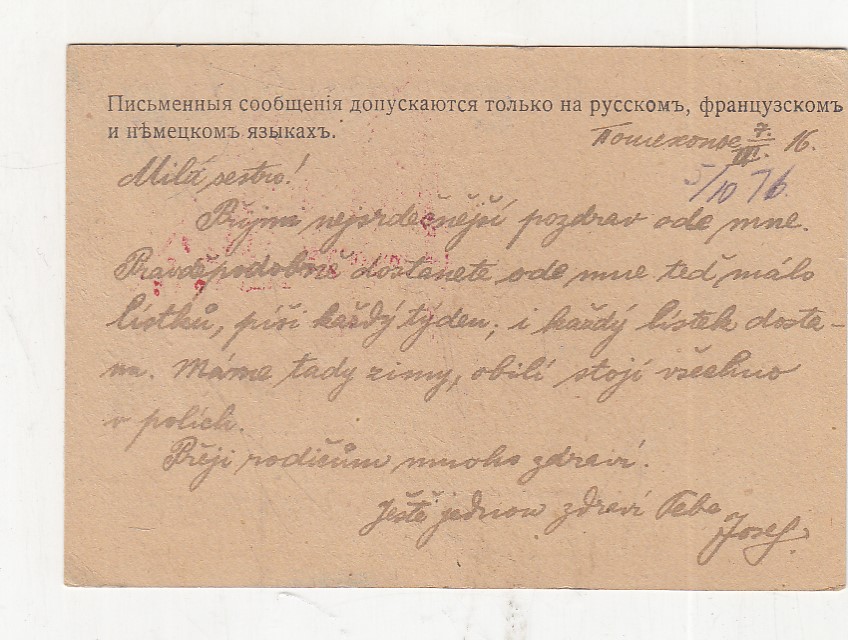 Письменныя сообщенія допускаются только на русскомъ, французскомъ
и нѣмецкомъ языкахъ.
Пошехонье 7. 16.
5/10 76
Milá sestro!
Přijmi nejsrdečnější pozdrav ode mne.
Pravděpodobně dostanete ode mne teď málo
lístků, píši každý týden, i každý lístek dosta-
nu. Máme tady zimy, obilí stojí všechno
v polích.
Přeji rodičům mnoho zdraví.
Ještě jednou zdraví Tebe
Josef.